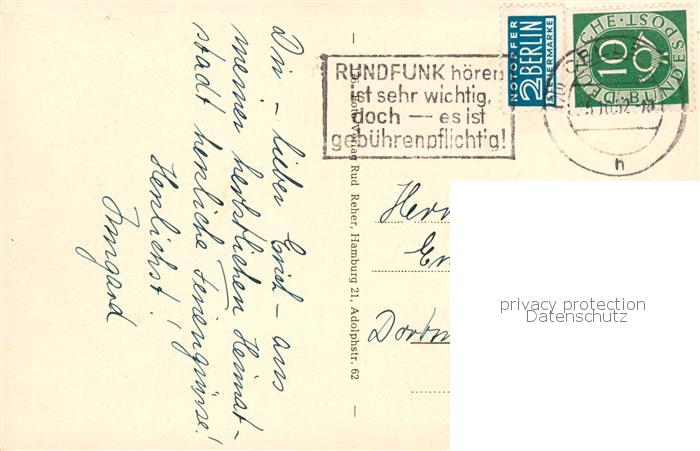 Dir – lieber Erich – aus
meiner herbstlichen Heimat-
stadt herzliche Feriengrüsse!
Herzlichst!
Irmgard
Rud Reher, Hamburg 21, Adolphstr. 62
RUNDFUNK hören
ist sehr wichtig,
doch — es ist
gebührenpflichtig!
NOTOPFER
2 BERLIN
STEUERMARKE
DEUTSCHE · BUNDESPOST
10
h
Herr
Er
Dortm
privacy protection
Datenschutz